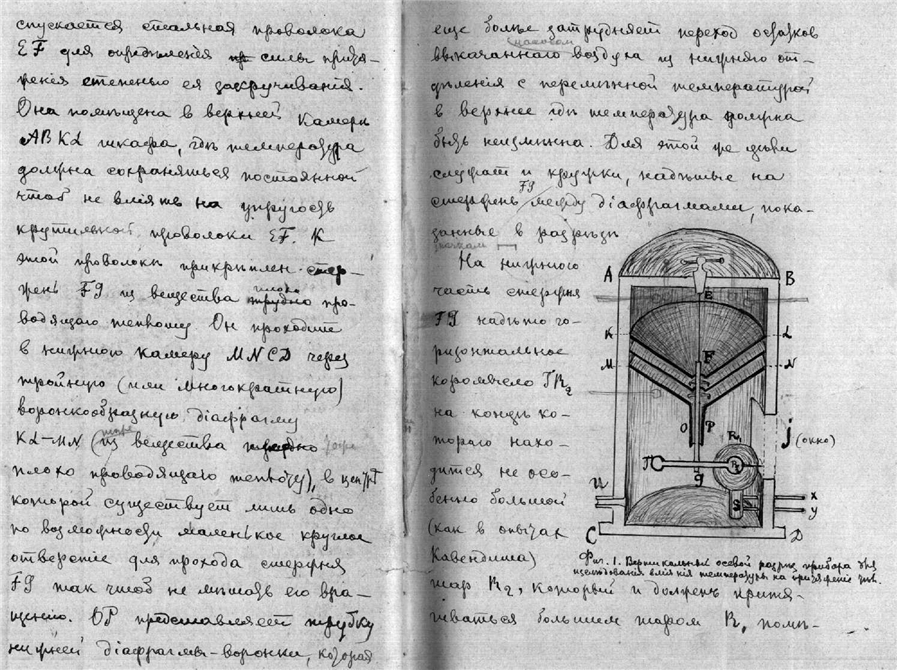 спускается стальная проволока
EF для определенія силы притя-
женія степенью ея закручиванія.
Она помѣщена в верхней камерѣ
ABKL шкафа, гдѣ температура
должна сохраняться постоянной
чтоб не вліять на упругость
крутильной проволоки EF. К
этой проволокѣ прикрѣплен стер-
жень FG из вещества плохо про-
водящаго теплоту. Он проходит
в нижнюю камеру MNCD через
тройную (или многократную)
воронкообразную діафрагму
KL-MN (из вещества тоже
плохо проводящаго теплоту), в центрѣ
которой существует лишь одно
по возможности маленькое круглое
отверстіе для прохода стержня
FG так чтоб не мѣшать его вра-
щенію. OP представляет трубку
нижней діафрагмы-воронки, которая
еще болѣе затрудняет переход остатков
выкачаннаго насосом воздуха из нижняго от-
дѣленія с перемѣнной температурой
в верхнее гдѣ температура должна
быть неизмѣнна. Для этой же цѣли
служат и кружки, надѣтые на
стержень FG между діафрагмами, пока-
занные в разрѣзѣ
На нижнюю
часть стержня
FG надѣто го-
ризонтальное
коромысло ПR₂
на концѣ ко-
тораго нахо-
дится не осо-
бенно большой
(как в опытах
Кавендиша)
шар R₂, который и должен притя-
гиваться большим шаром R₁ помѣ-
A B
E
K L
F
M N
O P
R₁
J (окно)
П R₂
G
U
S
x
y
C D
Фиг. 1. Вертикальный осевой разрѣз прибора для
изслѣдованія вліянія температуры на притяженіе тѣл.